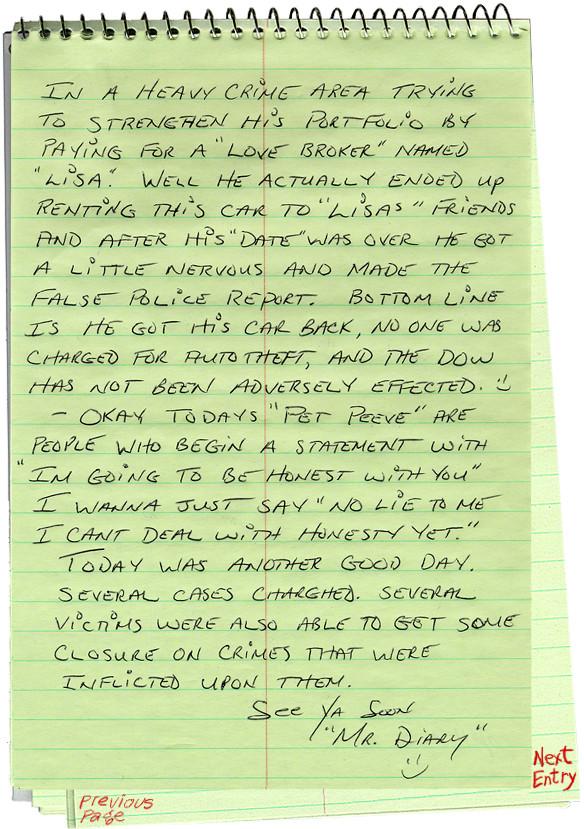 IN A HEAVY CRIME AREA TRYING
TO STRENGHEN HIS PORTFOLIO BY
PAYING FOR A "LOVE BROKER" NAMED
"LISA". WELL HE ACTUALLY ENDED UP
RENTING THIS CAR TO "LISAS" FRIENDS
AND AFTER HIS "DATE" WAS OVER HE GOT
A LITTLE NERVOUS AND MADE THE
FALSE POLICE REPORT. BOTTOM LINE
IS HE GOT HIS CAR BACK, NO ONE WAS
CHARGED FOR AUTO THEFT, AND THE DOW
HAS NOT BEEN ADVERSELY EFFECTED.
- OKAY TODAYS "PET PEEVE" ARE
PEOPLE WHO BEGIN A STATEMENT WITH
"IM GOING TO BE HONEST WITH YOU"
I WANNA JUST SAY "NO LIE TO ME
I CANT DEAL WITH HONESTY YET."
TODAY WAS ANOTHER GOOD DAY.
SEVERAL CASES CHARGHED. SEVERAL
VICTIMS WERE ALSO ABLE TO GET SOME
CLOSURE ON CRIMES THAT WERE
INFLICTED UPON THEM.
SEE YA SOON
"MR. DIARY"
Next
Entry
Previous
Page